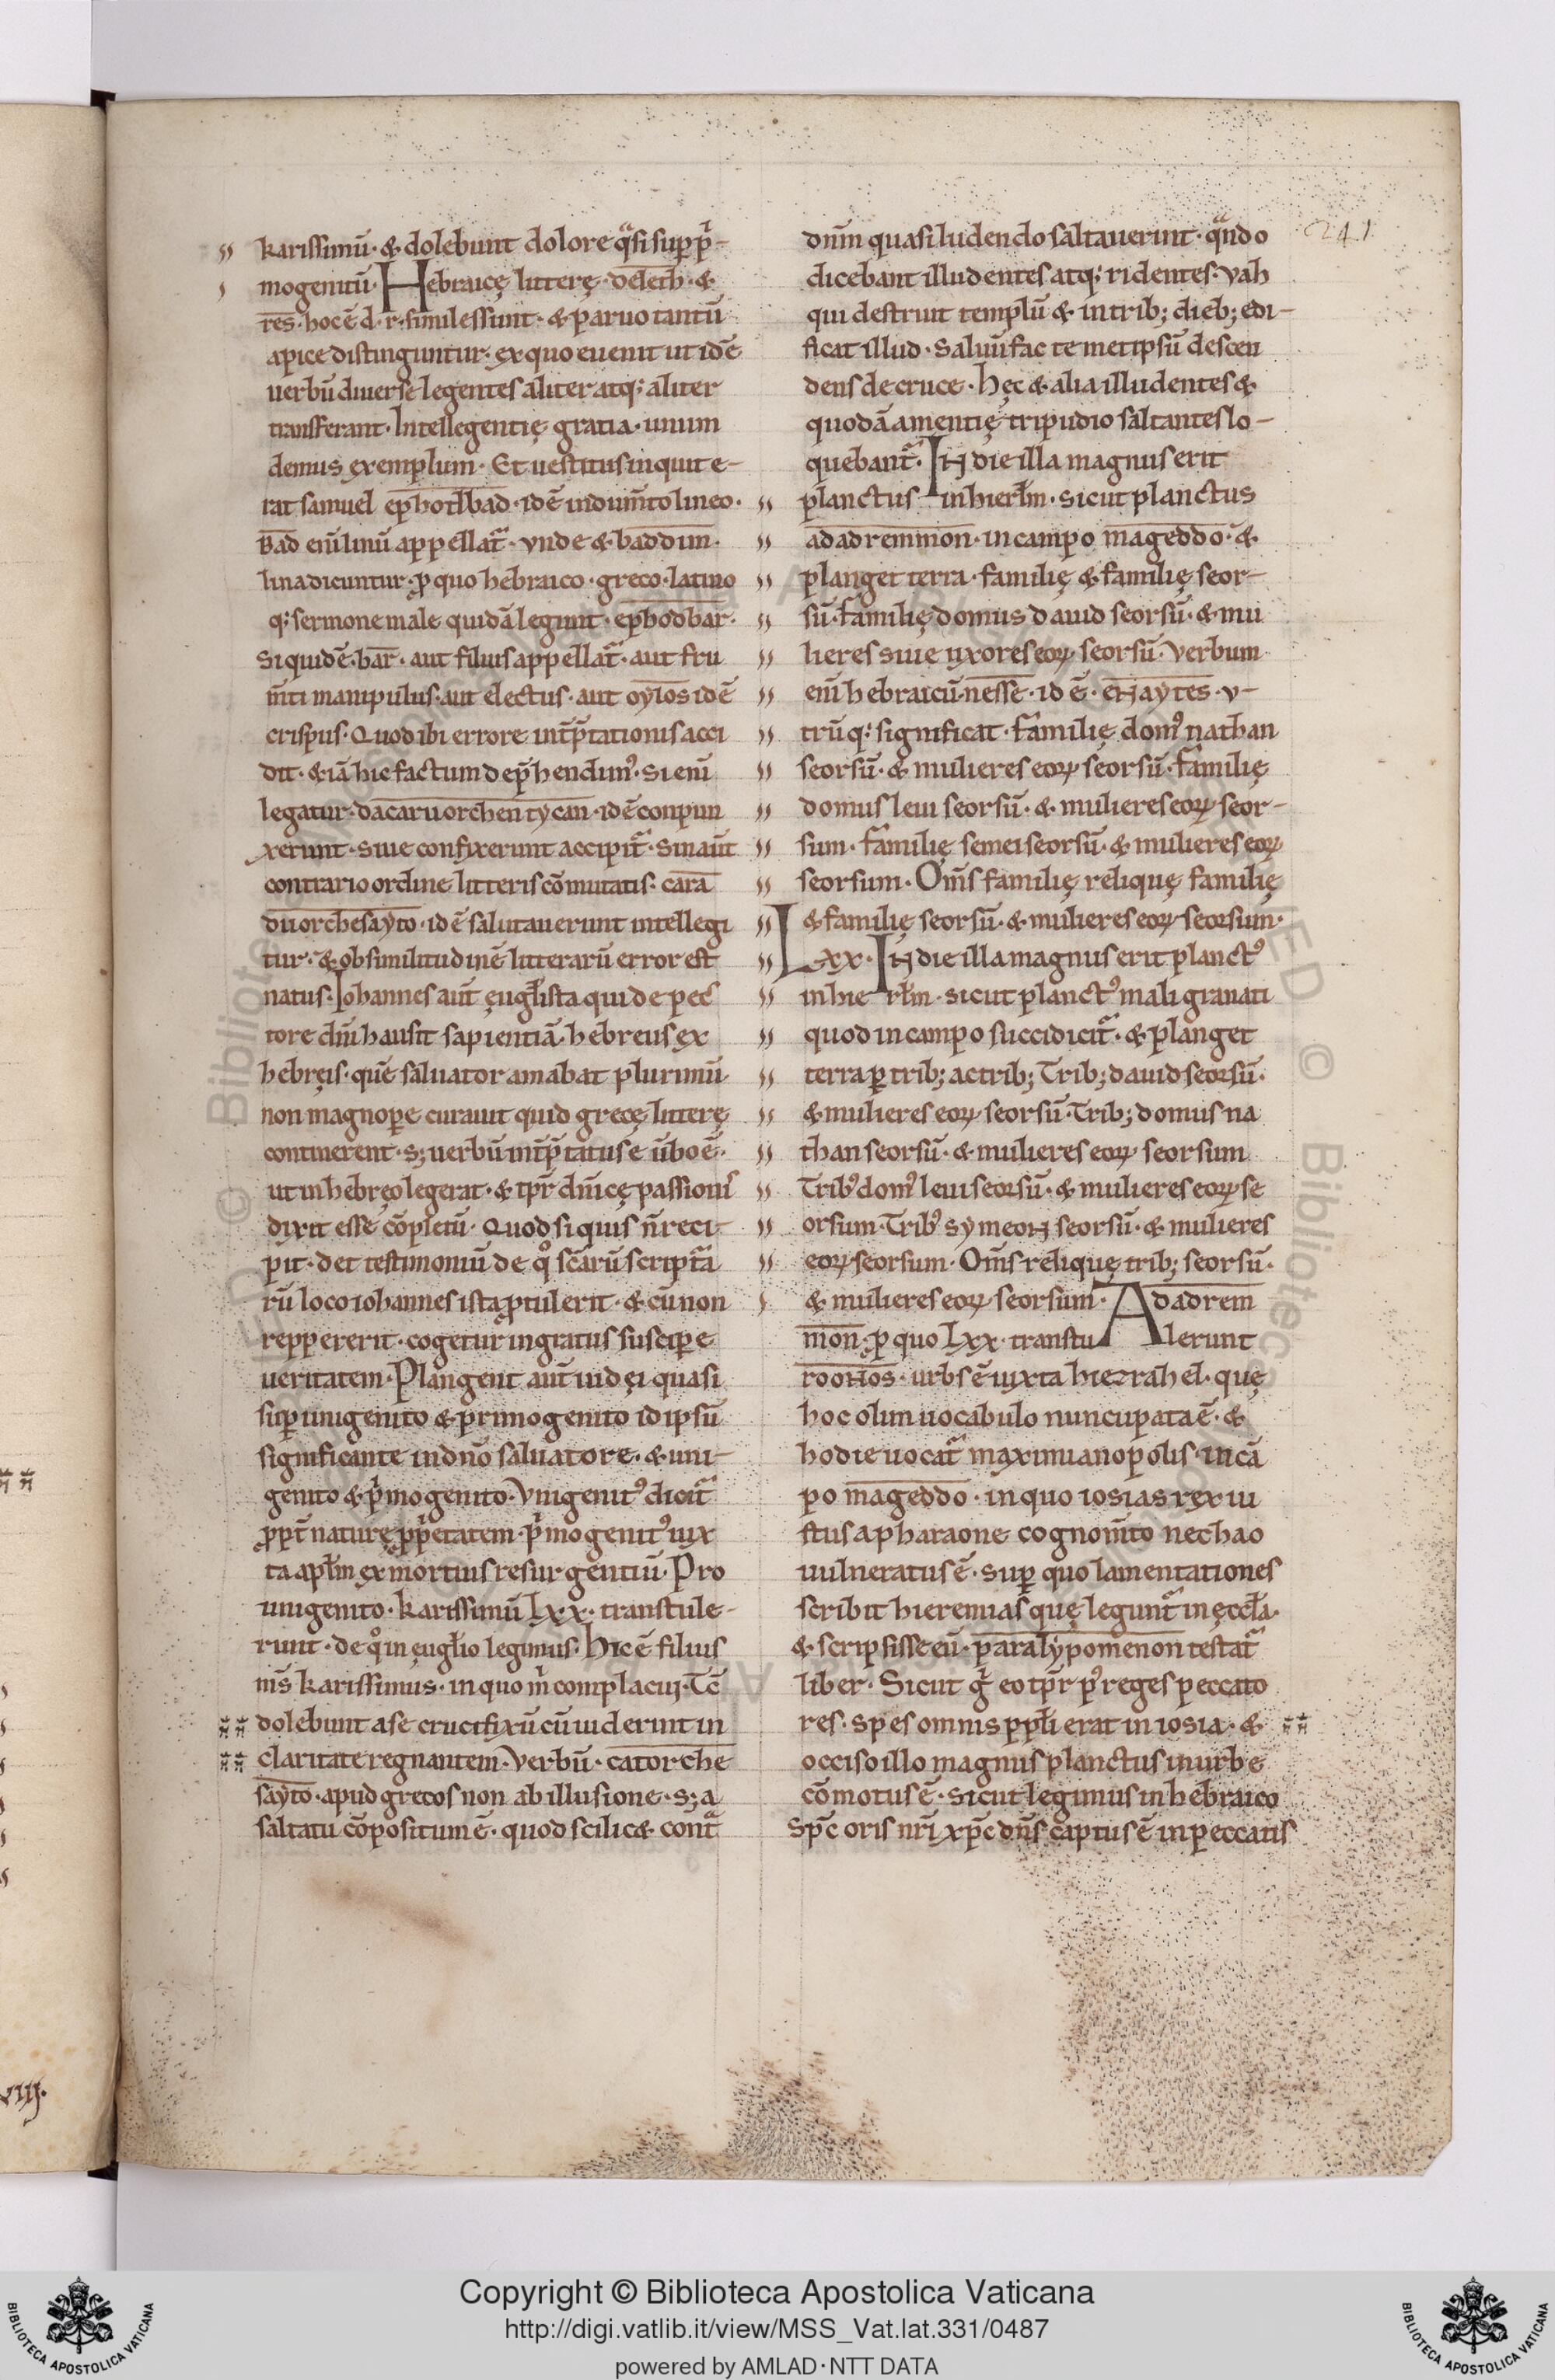 karissimū· & dolebunt dolore qͣsi sup̱ pͥ-
mogenitū· Hebraicę litterę· deleth· &
res· hoc ē d· r· similes sunt· & paruo tantū
apice distinguntur· ex quo euenit ut idē
uerbū diuerse legentes aliter atq; aliter
transferant· Intellegentię gratia· unum
demus exemplum· Et uestitus inquit e-
rat samuel ephothbad· id ē indumto lineo·
Bad enī linū appellat̃· vnde & baddim·
lina dicuntur· p̱ quo hebraico· greco· latino
q; sermone male quidā legunt· ephodbar·
Siquidē· bar· aut filius appellat̃· aut fru
m̄ti manipulus· aut electus· aut oylos id ē
crispus· Quod ibi errore int̃p̃tationis acci
dit· & iā hic factum dep̃hendim⁹· Si enī
legatur· dacaru orchentycan· id ē conpun
xerunt· siue confixerunt accipit̃· Sin aūt
contrario ordine litteris cōmutatis· cara
du orchesayto· id ē saltauerunt intellegi
tur· & ob similitudinē litterarū error est
natus· Iohannes aūt ęuglīsta qui de pec
tore dn̄i hausit sapientiā· hebreus ex
hebręis· quē saluator amabat plurimū·
non magnop̱e curauit quid grecę litterę
continerent· s; uerbū int̃p̃tatus ē ūbo ē·
ut in hebręo legerat· & tp̄r dn̄icę passionis
dixit esse cōpletū· Quod si quis n̄ reci-
pit· det testimoniū de qͦ sc̄arū scriptͣa
rū loco iohannes ista p̱tulerit· & cū non
reppererit· cogetur ingratus suscip̱e
ueritatem· Plangent aūt iudęi quasi
sup̱ unigenito & primogenito id ipsū
significante in dn̄o saluatore· & uni-
genito & pͥmogenito· Vnigenit⁹ dicit̃
p̱pt̄ naturę p̱pͥetatem· pͥmogenit⁹ iux
ta apłm ex mortuis resurgentiū· Pro
unigenito· karissimū Lxx· transtule-
runt· de qͦ in ęugłio legimus· Hic ē filius
m̄s karissimus· in quo mͥ complacui· Tc̄
dolebunt a se crucifixū cū uiderint in
claritate regnantem· Verbū· catorche
sayto· apud grecos non ab illusione· s; a
saltatu cōpositum ē· quod scilic& contͣ
dnm̄ quasi ludendo saltauerint· qͣndo
dicebant illudentes atq; ridentes· Vah
qui destruit templū & in trib; dieb; edi-
ficat illud· Saluū fac temetipsū descen
dens de cruce· Hęc & alia illudentes &
quodā amentię tripudio saltantes lo-
quebant̃· IN die illa magnus erit
planctus in hierłm· sicut planctus
adadremmon· in campo mageddo· &
planget terra· familię & familię seor-
sū· familię domus dauid seorsū· & mu
lieres siue uxores eoꝝ seorsū· Verbum
enī hebraicū· nesse· id ē· eNaytes· v-
trūq; significat· familię dom⁹ nathan
seorsū· & mulieres eoꝝ seorsū· familię
domus leui seorsū· & mulieres eoꝝ seor-
sum· familię semei seorsū· & mulieres eoꝝ
seorsum· Om̄s familię relique̜ familię
& familię seorsū· & mulieres eoꝝ seorsum·
Lxx· IN die illa magnus erit planct⁹
in hierłm· sicut planct⁹ mali granati
quod in campo succidicit̃· & planget
terra p̱ trib; ac trib; Trib; dauid seorsū·
& mulieres eoꝝ seorsū· Trib; domus na
than seorsū· & mulieres eoꝝ seorsum
Trib⁹ dom⁹ leui seorsū· & mulieres eoꝝ se
orsum· Trib⁹ symeoN seorsū· & mulieres
eoꝝ seorsum· Om̄s relique̜ trib; seorsū·
& mulieres eoꝝ seorsum· Adadrem
mon· p̱ quo Lxx· transtulerunt
rooNos· urbs ē iuxta hiezrahel· quę
hoc olim uocabulo nuncupata ē· &
hodie uocat̃ maximianopolis· in cā
po mageddo· in quo iosias rex iu
stus a pharaone cognom̄to nechao
uulneratus ē· Sup̱ quo lamentationes
scribit hieremias que̜ legunt̃ in ęccła·
& scripsisse eū· paralypomenon testat̃
liber· Sicut gͥ eo tp̄r p⁹ reges peccato
res· spes omnis pp̱łi erat in iosia· &
occiso illo magnus planctus in urbe
cōmotus ē· sicut legimus in hebraico
Sp̄c oris nr̄i xp̄c dn̄s captus ē in peccatis
241
viij·
Copyright © Biblioteca Apostolica Vaticana
http://digi.vatlib.it/view/MSS_Vat.lat.331/0487
powered by AMLAD·NTT DATA
BIBLIOTECA APOSTOLICA VATICANA
BIBLIOTECA APOSTOLICA VATICANA